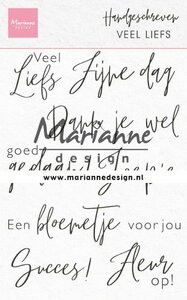 Marianne
design
Handgeschreven
VEEL LIEFS
Veel
Liefs Fijne dag
Dank je wel
Marianne
design
goed
© www.mariannedesign.nl
Een bloemetje voor jou
Succes! Fleur
op!